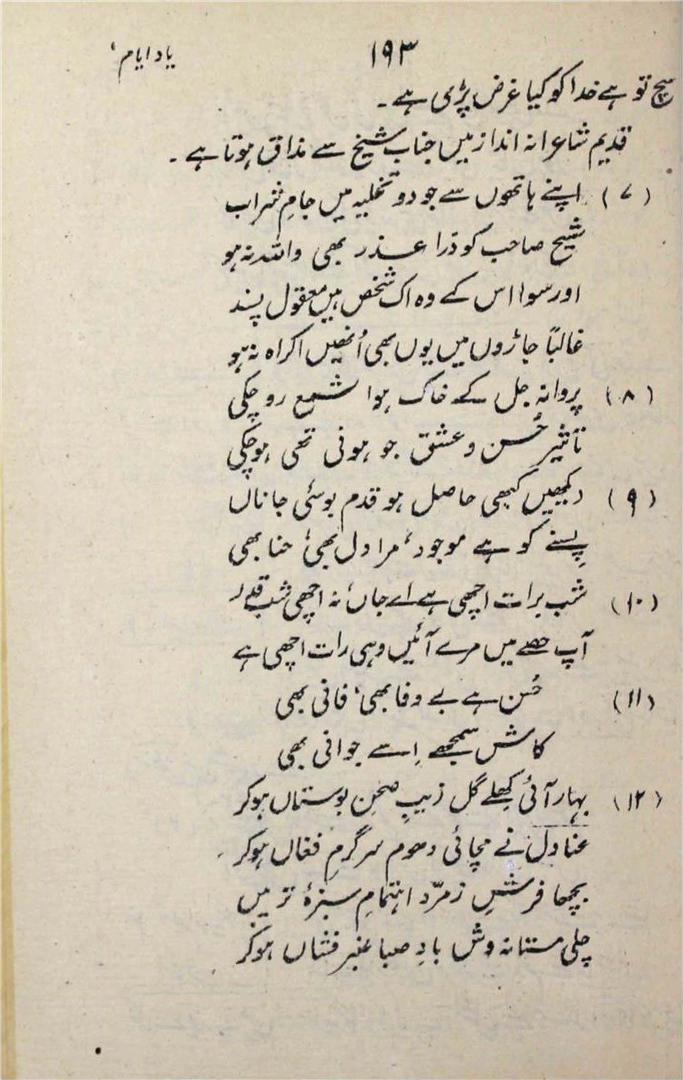 ۱۹۳
یاد ایام،
سچ تو ہے خدا کو کیا غرض پڑی ہے۔
قدیم شاعرانہ انداز میں جناب شیخ سے مذاق ہوتا ہے۔
(۷) اپنے ہاتھوں سے جو دو تخلیہ میں جامِ شراب
شیخ صاحب کو ذرا عذر بھی واللہ نہ ہو
اور سوا اس کے وہ اک شخص ہیں معقول پسند
غالباً جاڑوں میں یوں بھی اُنھیں اکراہ نہ ہو
(۸) پروانہ جل کے خاک ہوا شمع رو چکی
تاثیر حُسن و عشق جو ہونی تھی ہو چکی
(۹) دیکھیں کبھی حاصل ہو قدم بوسئی جاناں
پِسنے کو ہے موجود، مرا دل بھی، حنا بھی
(۱۰) شب برات اچھی ہے اے جاں نہ اچھی شب قدر
آپ حصے میں مرے آئیں وہی رات اچھی ہے
(۱۱) حُسن ہے بے وفا بھی، فانی بھی
کاش سمجھے اِسے جوانی بھی
(۱۲) بہار آئی کِھلے گل زیبِ صحنِ بوستاں ہو کر
عنادل نے مچائی دھوم سرگرمِ فغاں ہو کر
بچھا فرشِ زمرّد اہتمامِ سبزۂ تر میں
چلی مستانہ وش بادِ صبا عنبر فشاں ہو کر